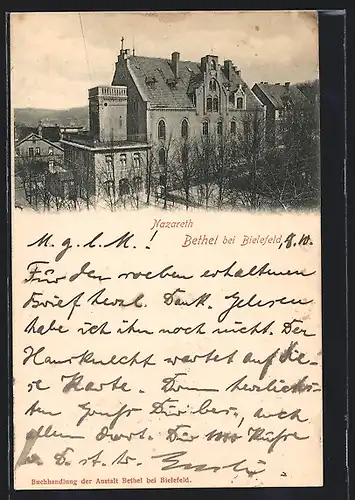 Nazareth
Bethel bei Bielefeld,
M. g. l. M.!
Für den soeben erhaltenen
Brief herzl. Dank. Gelesen
habe ich ihn noch nicht. Der
Hausknecht wartet auf die-
se Karte. Drum herzlich-
sten Gruß Dir lieber, auch
allen dort. Der
Buchhandlung der Anstalt Bethel bei Bielefeld.